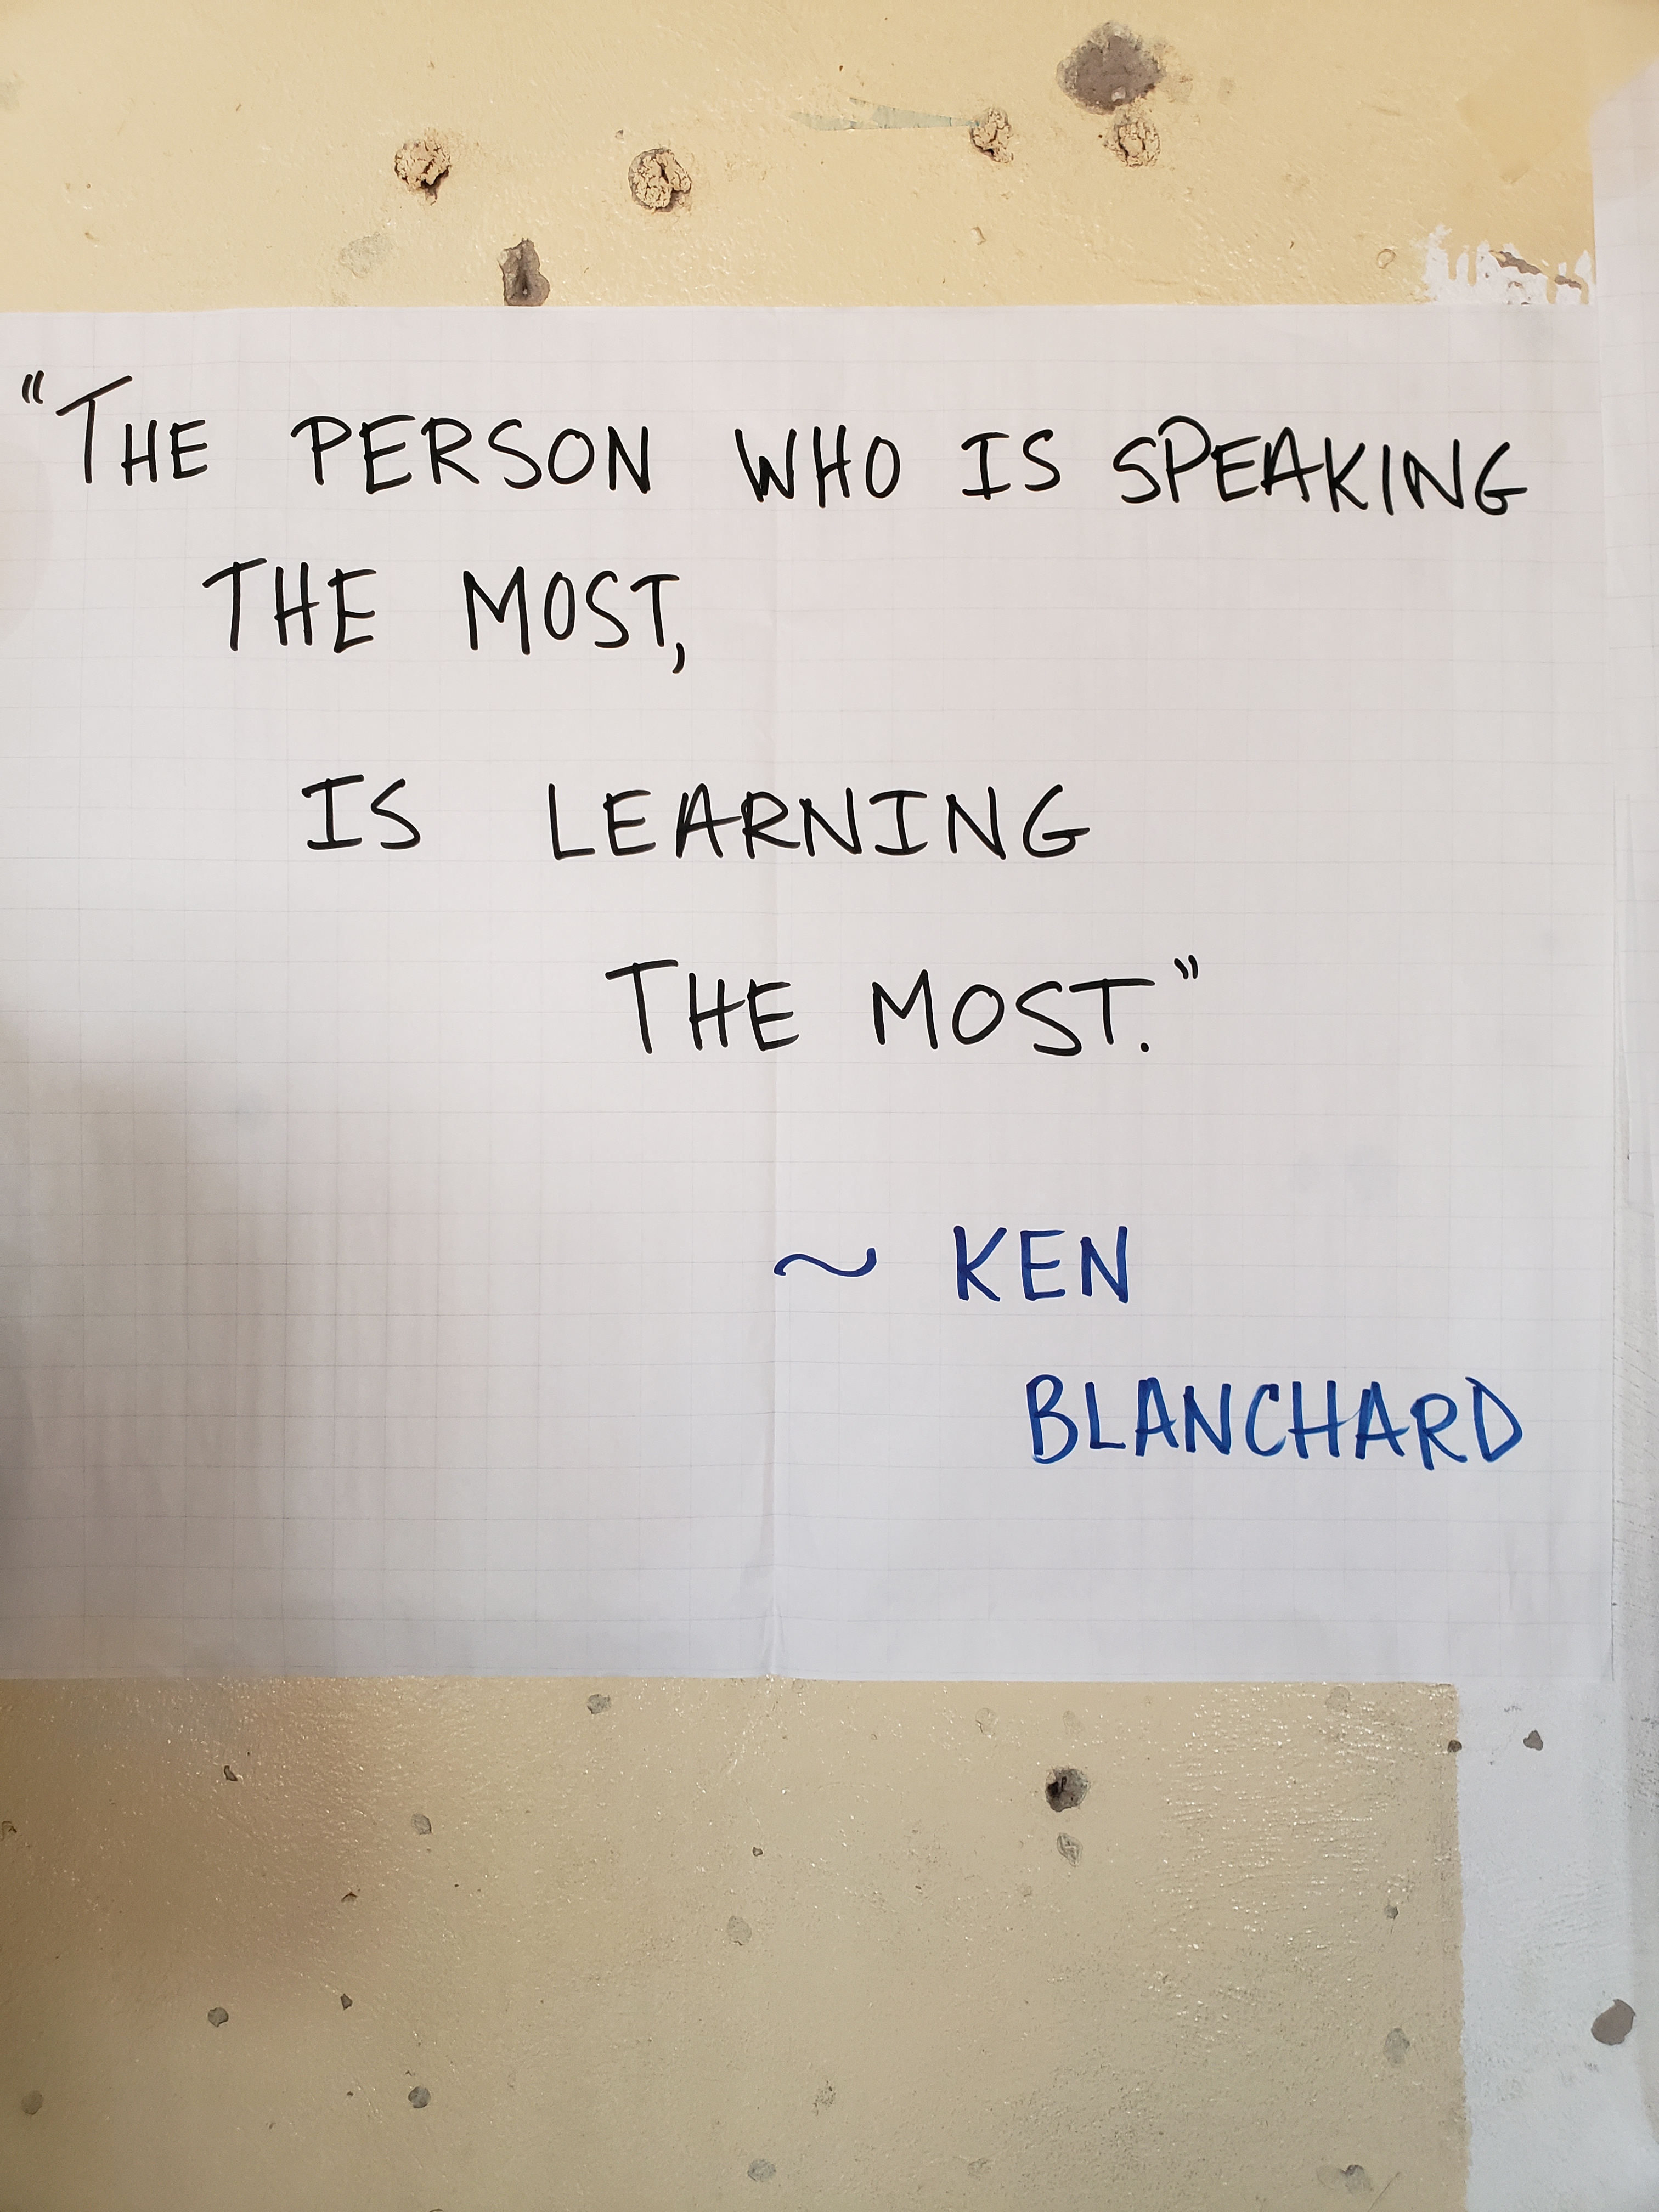 "THE PERSON WHO IS SPEAKING
THE MOST,
IS LEARNING
THE MOST."
~ KEN
BLANCHARD